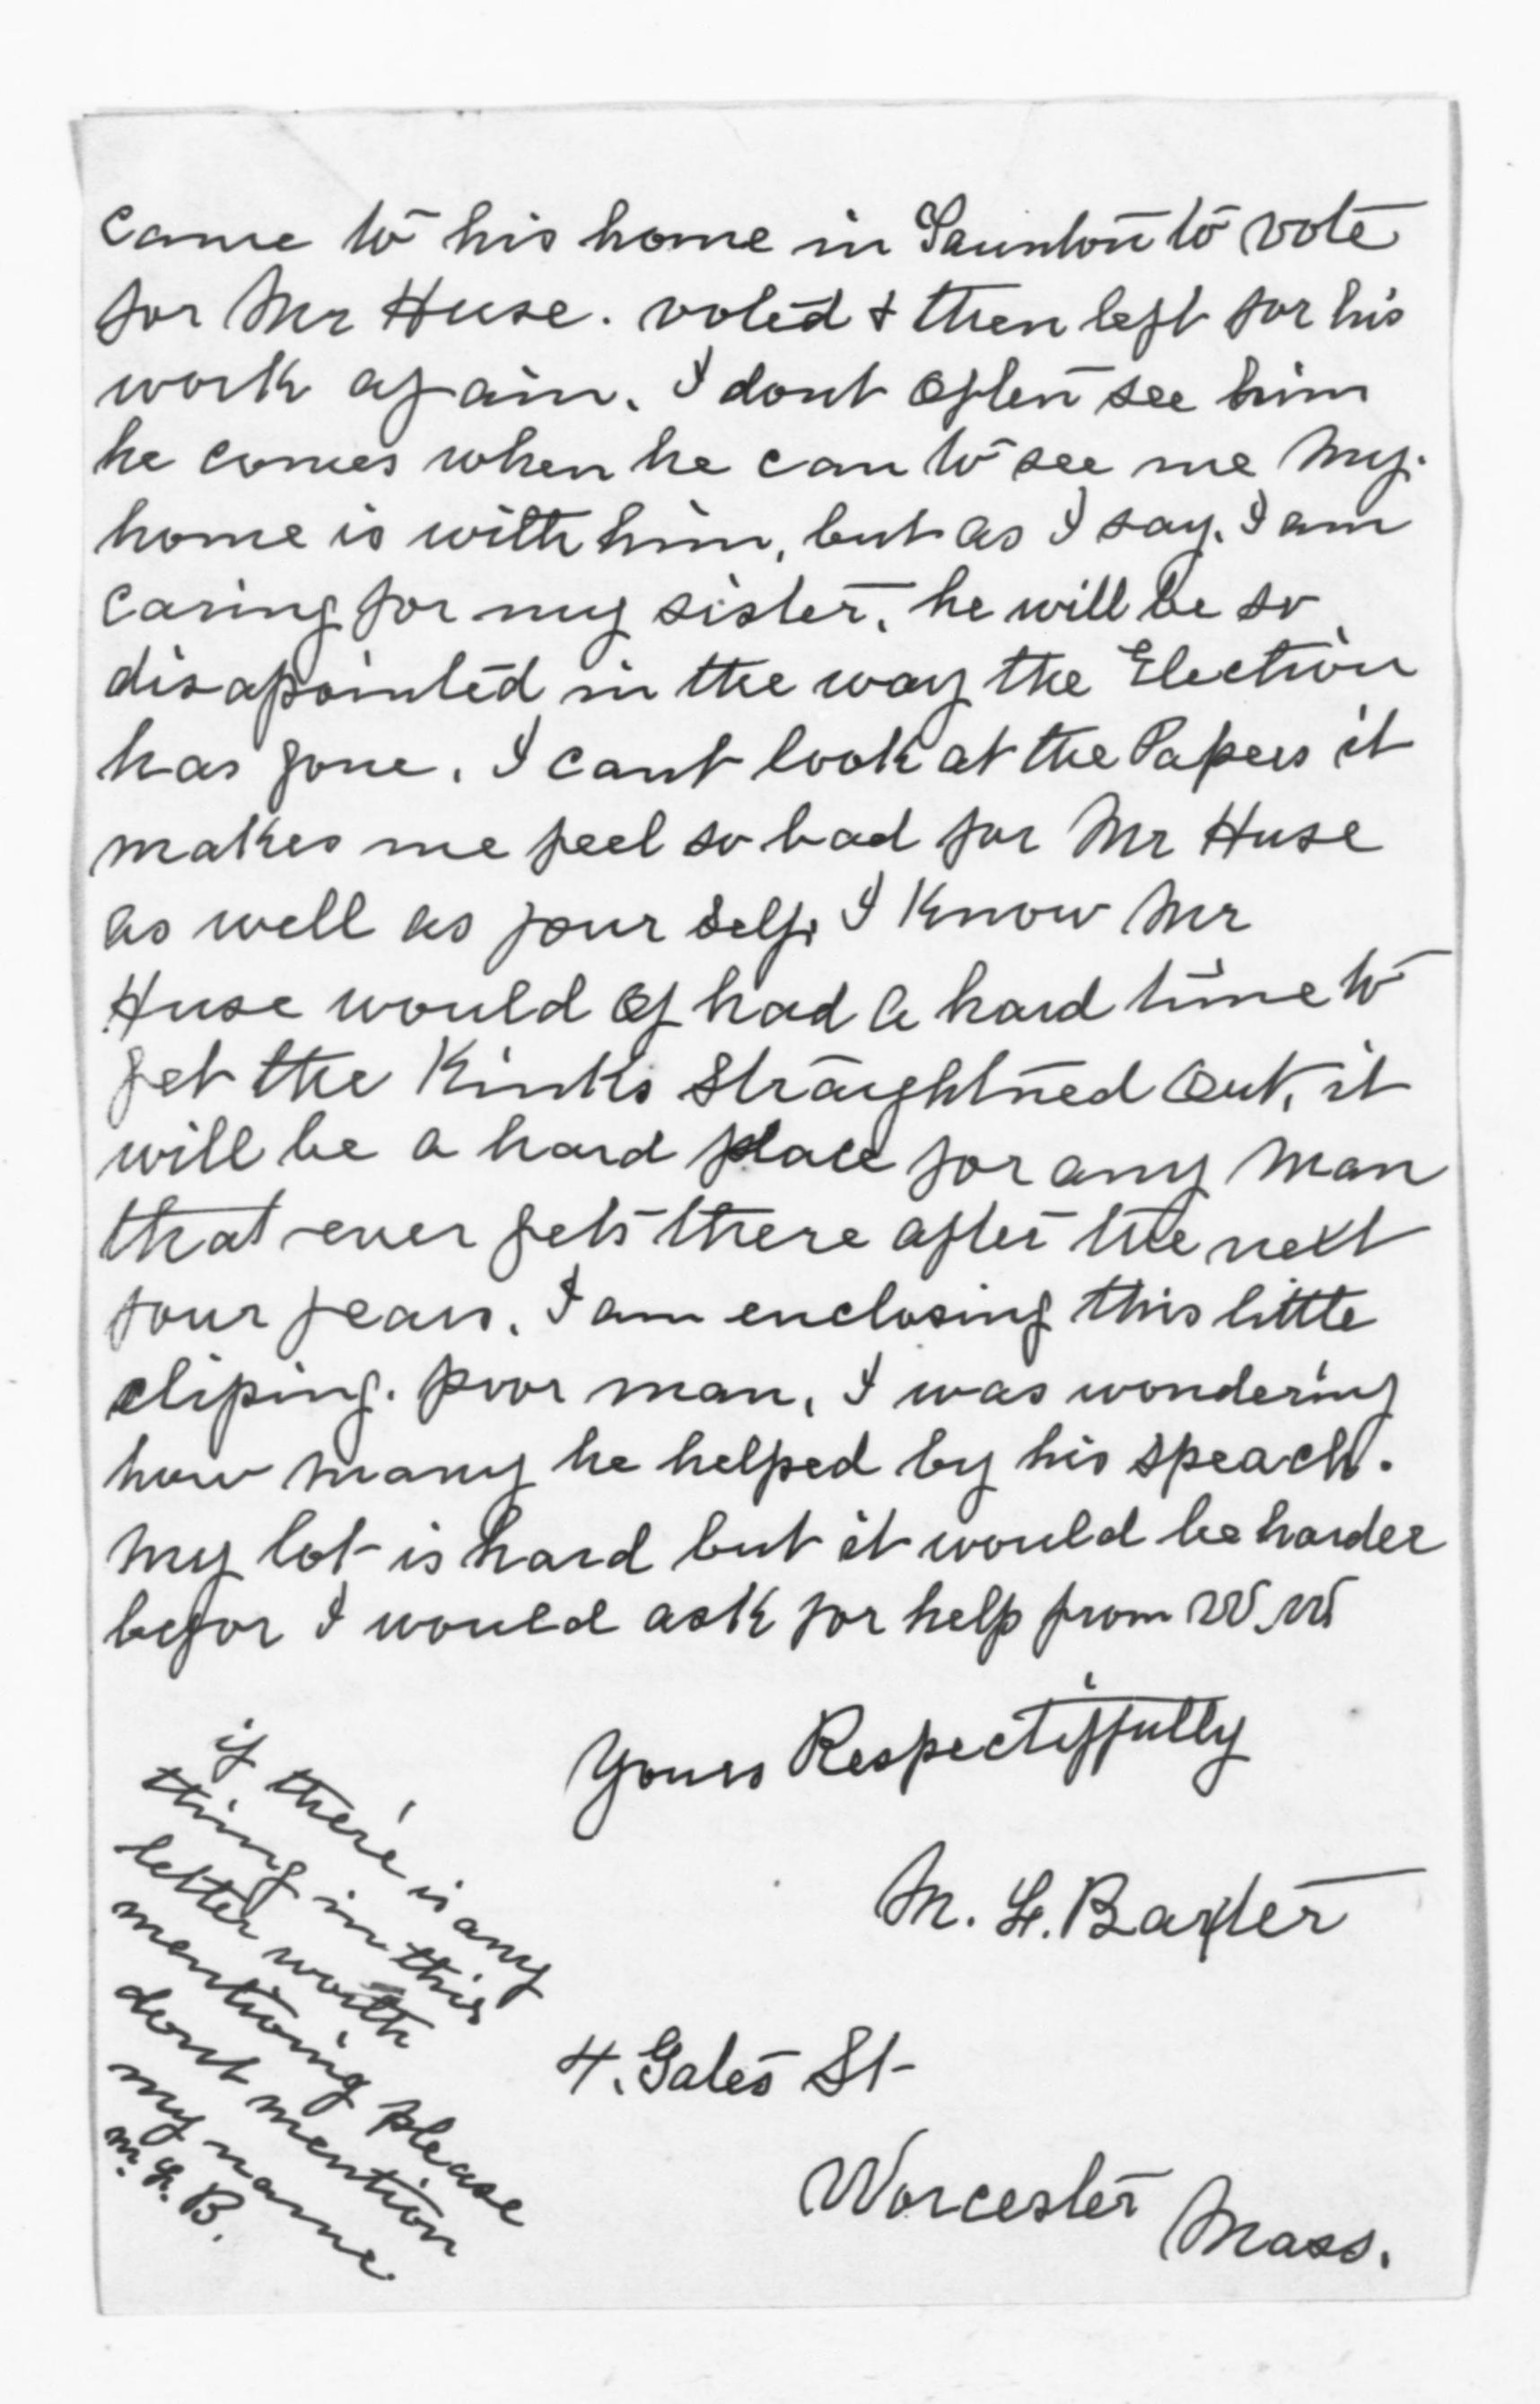 came to his home in Taunton to vote
for Mr Huse. voted & then left for his
work again. I dont often see him
he comes when he can to see me My.
home is with him, but as I say. I am
caring for my sister. he will be so
disapointed in the way the Election
has gone. I cant look at the Papers it
makes me feel so bad for Mr Huse
as well as your self. I know Mr
Huse would of had a hard time to
get the Kinks straightned out. it
will be a hard place for any man
that ever gets there after the next
four years. I am enclosing this little
cliping. poor man, I was wondering
how many he helped by his speach.
My lot is hard but it would be harder
befor I would ask for help from W.W
Yours Respectiffully
M. L. Baxter
4. Gates St
Worcester Mass.
if there is any
thing in this
letter worth
mentioing please
dont mention
my name.
M. L. B.